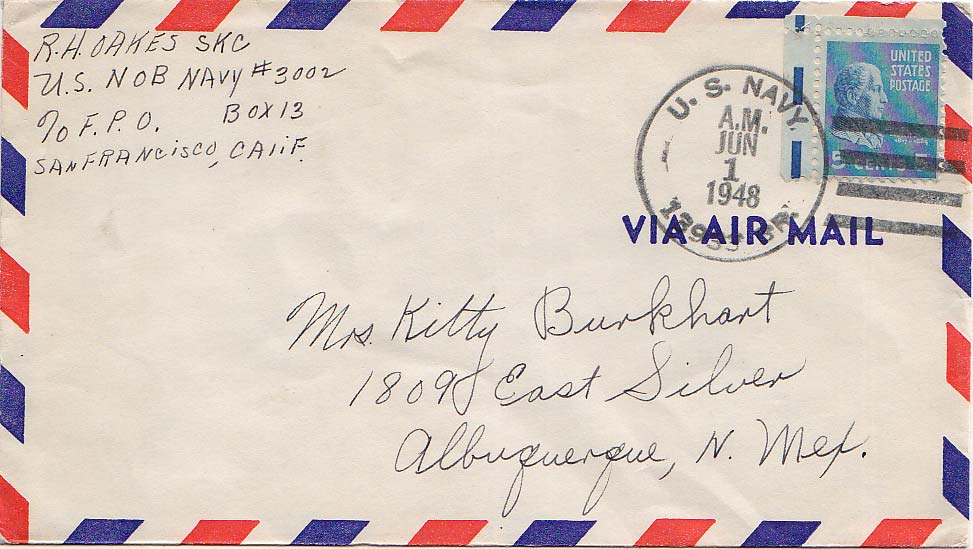 R.H. OAKES SKC
U.S. NOB NAVY #3002
c/o F.P.O. BOX 13
SAN FRANCISCO, CALIF.
UNITED
STATES
POSTAGE
5 CENTS 5
U. S. NAVY
A.M.
JUN
1
1948
BR.
VIA AIR MAIL
Mrs. Kitty Burkhart
1809 East Silver
Albuquerque, N. Mex.